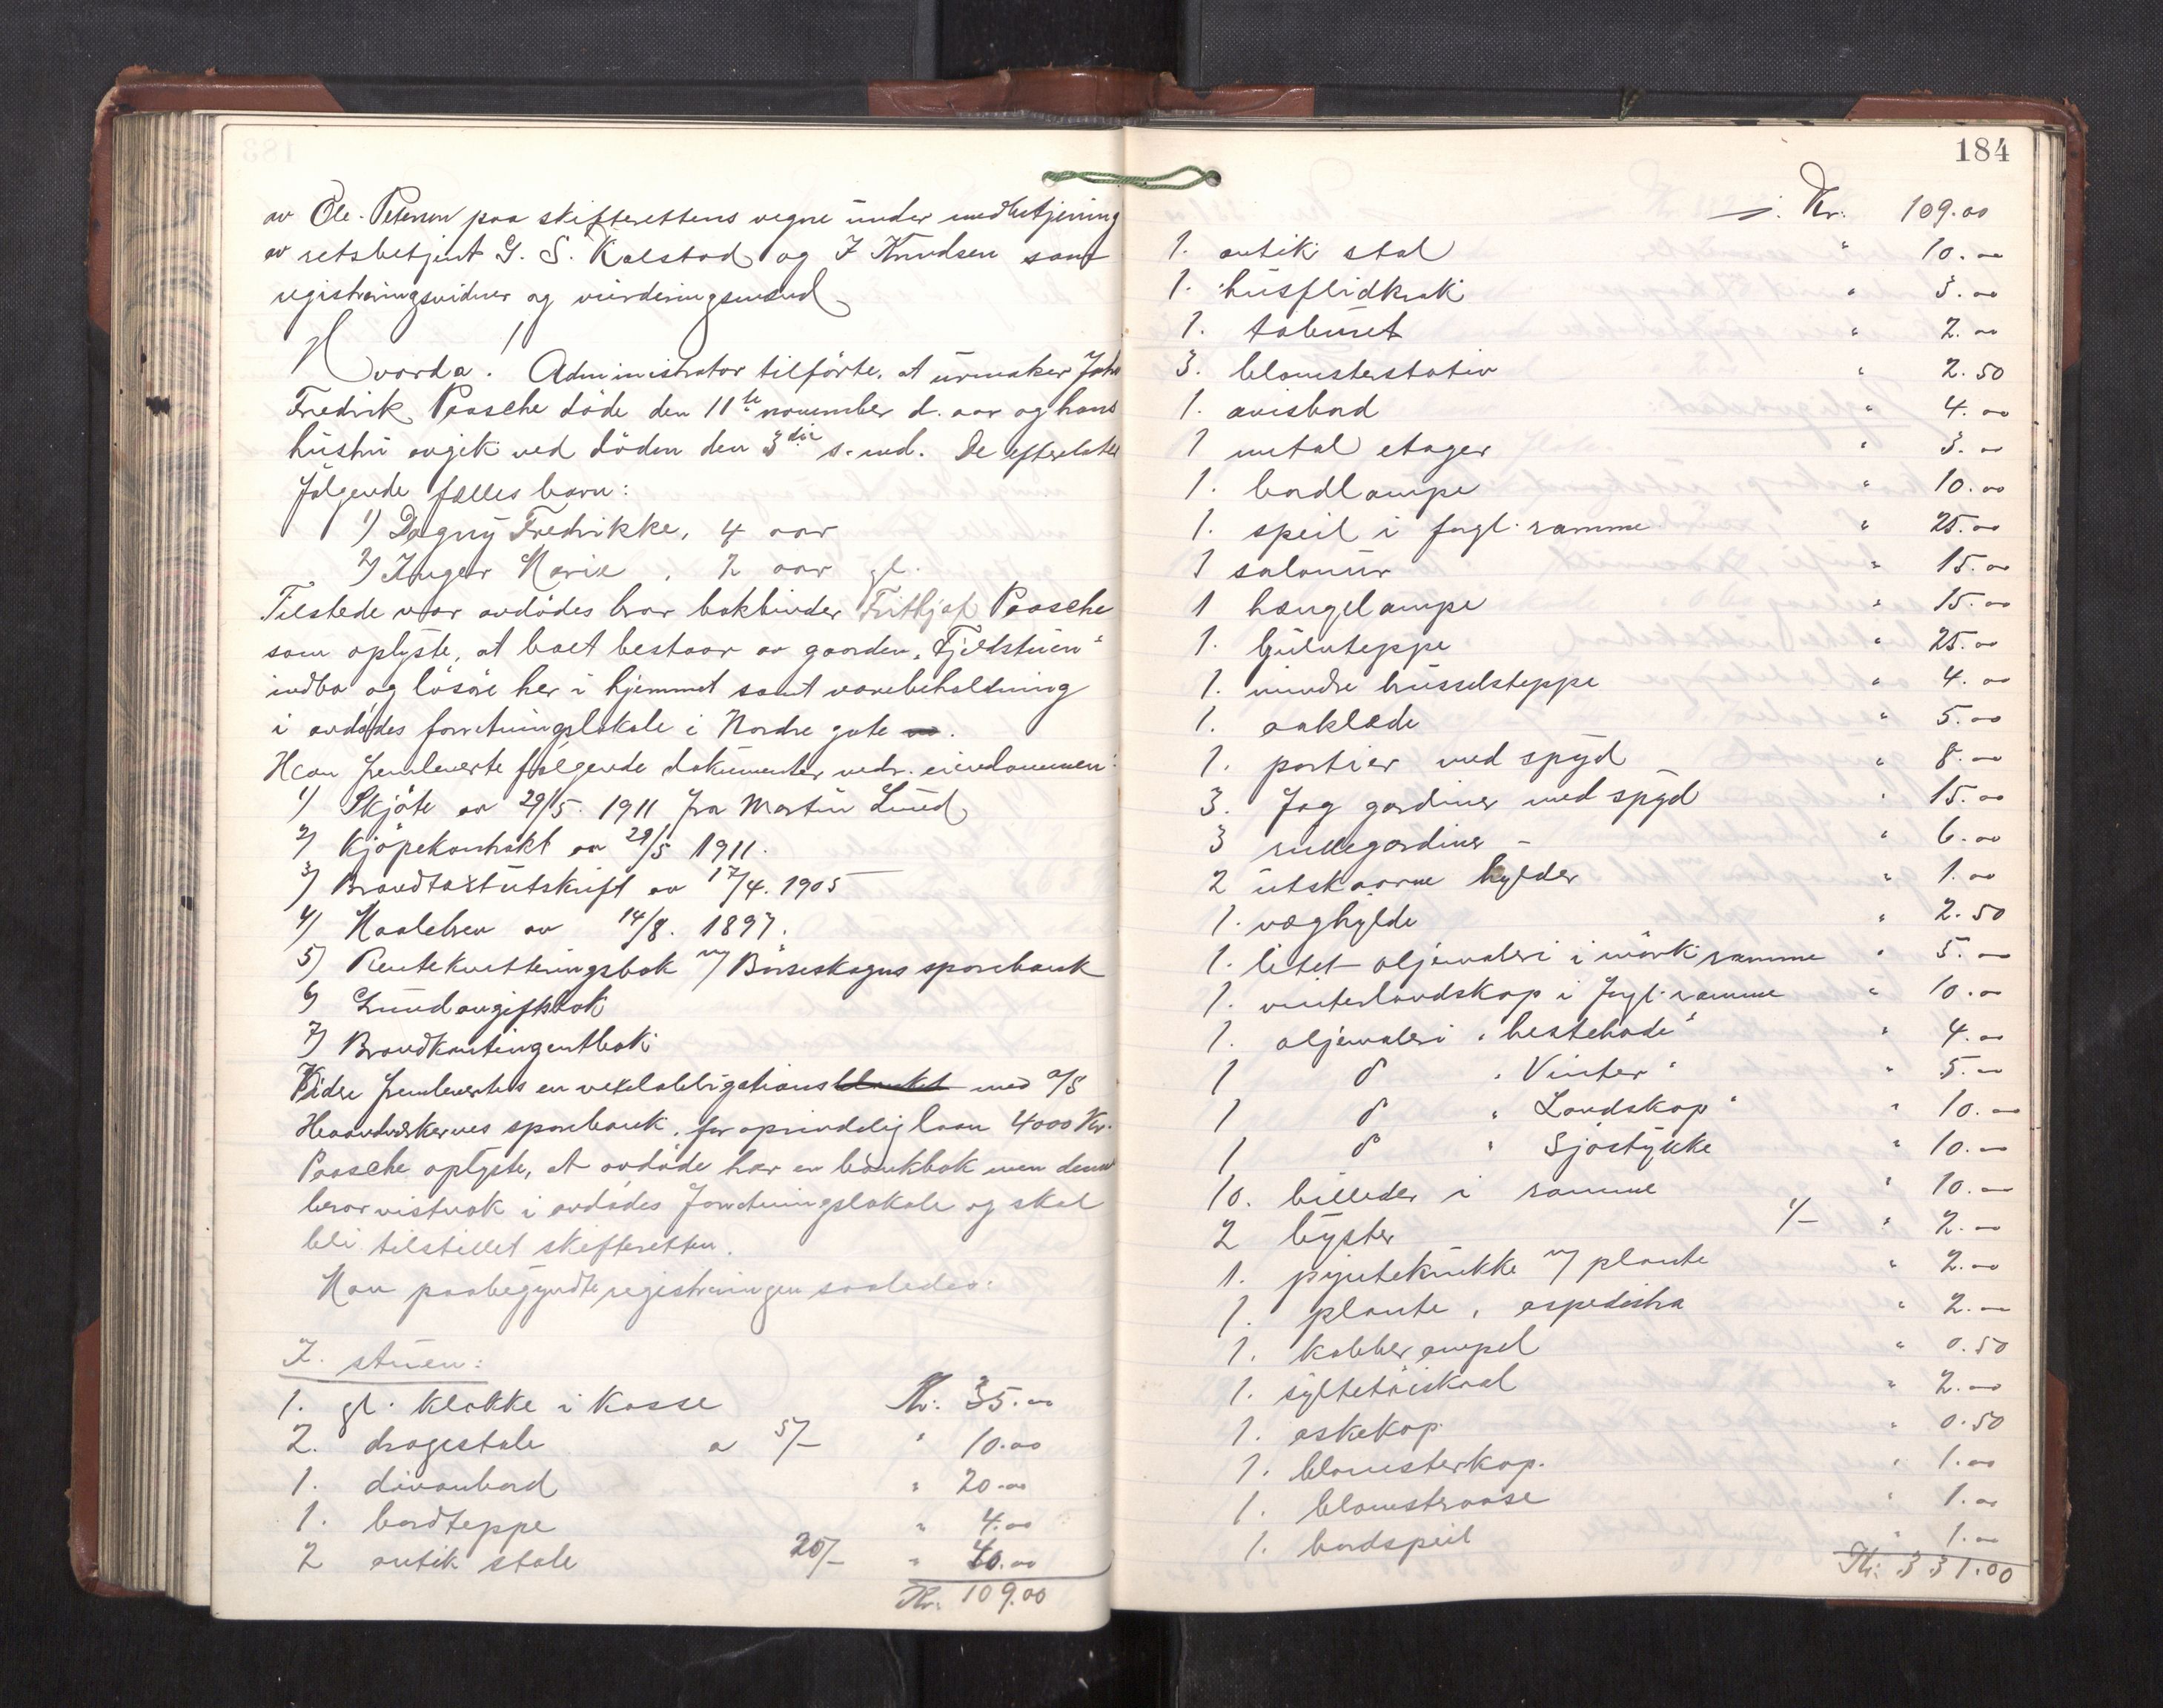 av Ole Peterson paa skifterettens vegne under medbetjening
av retsbetjent G. S. Kalstad og I Knudsen samt
registreringsvidner og vurderingsmænd
Hvorda! Administrator tilførte, at urmaker John
Fredrik Paasche døde den 11te november d. aar og hans
hustru avgik ved døden den 3die s. md. De efterlater
følgende fælles barn:
1) Dagny Fredrikke, 4 aar
2) Inger Marie, 2 aar gl.
Tilstede var avdødes bror bokbinder Frithjof Paasche
som oplyste, at boet bestaar av gaarden "Fjeldstuen"
indbo og løsøre her i hjemmet samt varebeholdning
i avdødes forretningslokale i Nordre gate
Han fremleverte følgende dokumenter vedr. eiendommen:
1) Skjøte av 29/5. 1911 fra Martin Lund
2) Kjøpekontrakt av 29/5 1911.
3) Brandtaxtutskrift av 17/4. 1905
4) Maalebrev av 14/8. 1897.
5) Rentekvitteringsbok m/ Børseskogns sparebank
6) Grundavgiftsbok
7) Brandkontingentbok
Videre fremlevertes en vexelobligations blanket med a/s
Haandverkernes sparebank, for oprindelig laan 4000 Kr.
Paasche oplyste, at avdøde har en bankbok men denne
beror vistnok i avdødes forretningslokale og skal
bli tilstillet skifteretten.
Man paabegyndte registreringen saaledes:
I. stuen:
1. gl. klokke i kasse Kr. 35.00
2. dragestole a 5/- " 10.00
1. divanbord " 20.00
1. bordteppe " 4.00
2 antik stole 20/- " 40.00
Kr. 109.00
184
Kr. 109.00
1. antik stol " 10.00
1. husflidkrak " 3.00
1. taburet " 2.00
3. blomsterstativ " 2.50
1. avisbord " 4.00
1 metal etager " 3.00
1. bordlampe " 10.00
1. speil i forgl. ramme " 25.00
1 salonur " 15.00
1 hængelampe " 15.00
1. gulvteppe " 25.00
1. mindre brusselsteppe " 4.00
1. aaklæde " 5.00
1. portier med spyd " 8.00
3. fag gardiner med spyd " 15.00
3 rullegardiner - " 6.00
2 utskaarne hylder " 1.00
1. væghylde " 2.50
1. litet oljemaleri i mørk ramme " 5.00
1. vinterlandskap i forgl. ramme " 10.00
1. oljemaleri "hestehode" " 4.00
1 do "Vinter" " 5.00
1 do "Landskap" " 10.00
1 do " Sjøstykke " 10.00
10. billeder i ramme " 10.00
2 byster 1/- " 2.00
1. pyntekrukke m/ plante " 2.00
1. plante, aspedistra " 2.00
1. kobberampel " 0.50
1. syltetøiskaal " 2.00
1. askekop " 0.50
1. blomsterkop. " 1.00
1. blomstervase " 1.00
1. bordspeil " 1.00
Kr. 331.00